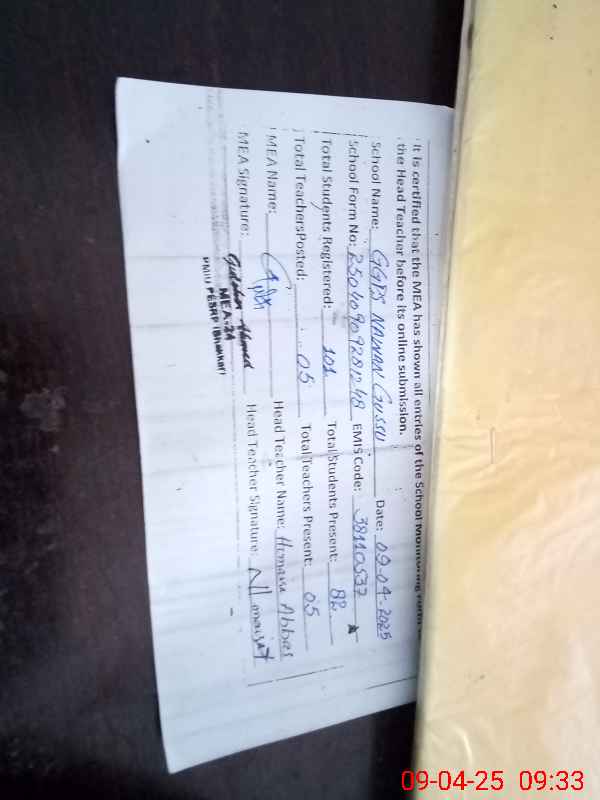 It is certified that the MEA has shown all entries of the School Monitoring Form to
the Head Teacher before its online submission.
School Name: GGPS NAWAN GUSSU Date: 09-04-2025
School Form No: 25040909281248 EMIS Code: 38110537
Total Students Registered: 101 Total Students Present: 82
Total TeachersPosted: 05 Total Teachers Present: 05
MEA Name: Head Teacher Name: Humaira Abbas
MEA Signature: Head Teacher Signature:
Gulshan Ahmed
MEA-24
PMIU PESRP (Bhakkar)
09-04-25 09:33